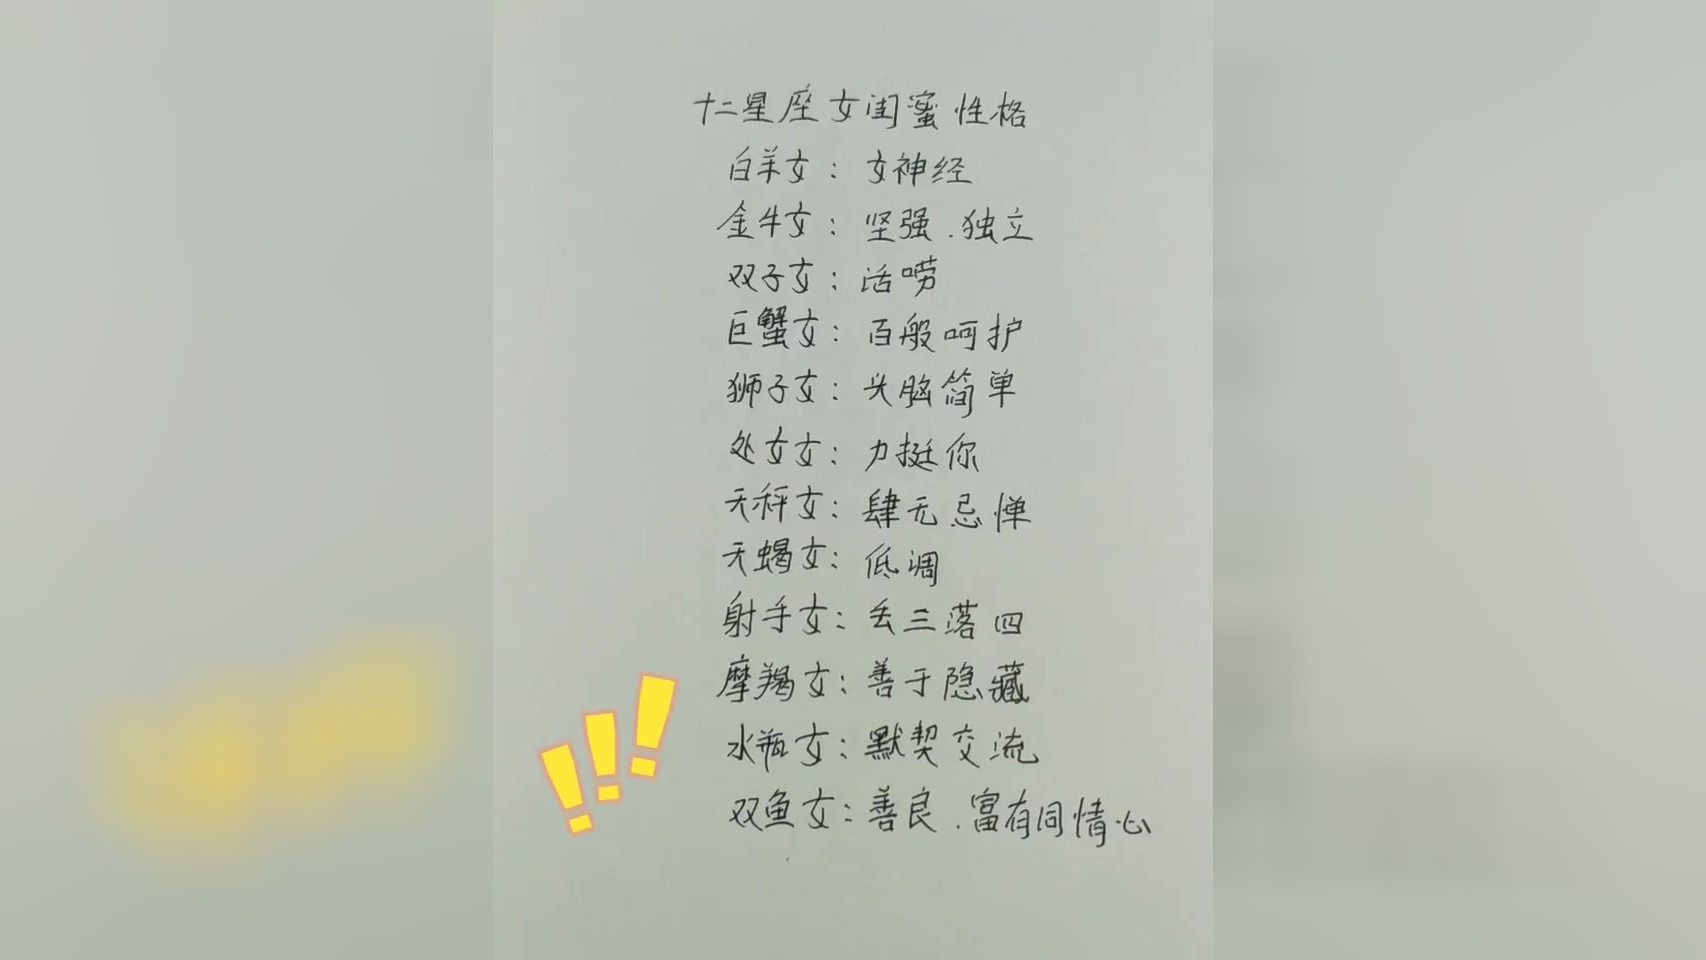 十二星座女闺蜜性格
白羊女：女神经
金牛女：坚强.独立
双子女：话唠
巨蟹女：百般呵护
狮子女：头脑简单
处女女：力挺你
天秤女：肆无忌惮
天蝎女：低调
射手女：丢三落四
摩羯女：善于隐藏
水瓶女：默契交流
双鱼女：善良.富有同情心
!!!